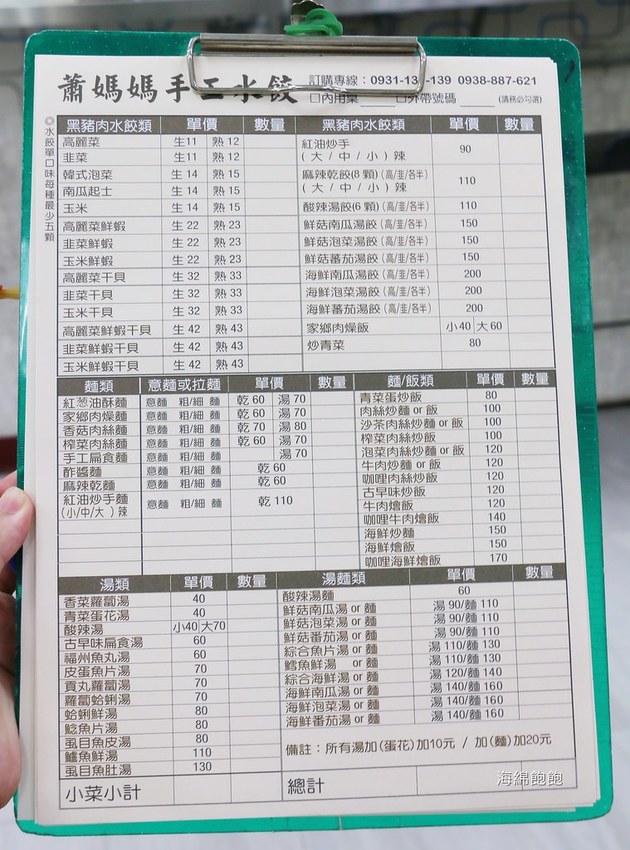 蕭媽媽手工水餃
訂購專線：0931-13 -139 0938-887-621
□內用桌 □外帶號碼 (請務必勾選)
◎水餃單口味每種最少五顆
黑豬肉水餃類 單價 數量
高麗菜 生11 熟12
韭菜 生11 熟12
韓式泡菜 生14 熟15
南瓜起士 生14 熟15
玉米 生14 熟15
高麗菜鮮蝦 生22 熟23
韭菜鮮蝦 生22 熟23
玉米鮮蝦 生22 熟23
高麗菜干貝 生32 熟33
韭菜干貝 生32 熟33
玉米干貝 生32 熟33
高麗菜鮮蝦干貝 生42 熟43
韭菜鮮蝦干貝 生42 熟43
玉米鮮蝦干貝 生42 熟43
黑豬肉水餃類 單價 數量
紅油炒手
(大/中/小)辣 90
麻辣乾餃(8顆)(高/韭/各半)
(大/中/小)辣 110
酸辣湯餃(6顆)(高/韭/各半) 110
鮮菇南瓜湯餃(高/韭/各半) 150
鮮菇泡菜湯餃(高/韭/各半) 150
鮮菇蕃茄湯餃(高/韭/各半) 150
海鮮南瓜湯餃(高/韭/各半) 200
海鮮泡菜湯餃(高/韭/各半) 200
海鮮蕃茄湯餃(高/韭/各半) 200
家鄉肉燥飯 小40 大60
炒青菜 80
麵類 意麵或拉麵 單價 數量
紅葱油酥麵 意麵 粗/細 麵 乾60 湯70
家鄉肉燥麵 意麵 粗/細 麵 乾60 湯70
香菇肉絲麵 意麵 粗/細 麵 乾70 湯80
榨菜肉絲麵 意麵 粗/細 麵 乾60 湯70
手工扁食麵 意麵 粗/細 麵 湯70
酢醬麵 意麵 粗/細 麵 乾60
麻辣乾麵 意麵 粗/細 麵 乾60
紅油炒手麵
(小/中/大 )辣 意麵 粗/細 麵 乾110
麵/飯類 單價 數量
青菜蛋炒飯 80
肉絲炒麵 or 飯 100
沙茶肉絲炒麵 or 飯 100
榨菜肉絲炒飯 100
泡菜肉絲炒麵 or 飯 120
牛肉炒麵 or 飯 120
咖哩肉絲炒飯 120
古早味炒飯 120
牛肉燴飯 120
咖哩牛肉燴飯 140
海鮮炒麵 150
海鮮燴飯 150
咖哩海鮮燴飯 170
湯類 單價 數量
香菜蘿蔔湯 40
青菜蛋花湯 40
酸辣湯 小40 大70
古早味扁食湯 60
福州魚丸湯 60
皮蛋魚片湯 70
貢丸蘿蔔湯 70
蘿蔔蛤蜊湯 70
蛤蜊鮮湯 80
鯰魚片湯 80
虱目魚皮湯 80
鱸魚鮮湯 110
虱目魚肚湯 130
小菜小計
湯麵類 單價 數量
酸辣湯麵 60
鮮菇南瓜湯 or 麵 湯 90/麵 110
鮮菇泡菜湯 or 麵 湯 90/麵 110
鮮菇蕃茄湯 or 麵 湯 90/麵 110
綜合魚片湯 or 麵 湯 110/麵 130
鱈魚鮮湯 or 麵 湯 110/麵 130
綜合海鮮湯 or 麵 湯 120/麵 140
海鮮南瓜湯 or 麵 湯 140/麵 160
海鮮泡菜湯 or 麵 湯 140/麵 160
海鮮蕃茄湯 or 麵 湯 140/麵 160
備註：所有湯加(蛋花)加10元 / 加(麵)加20元
總計
海綿飽飽